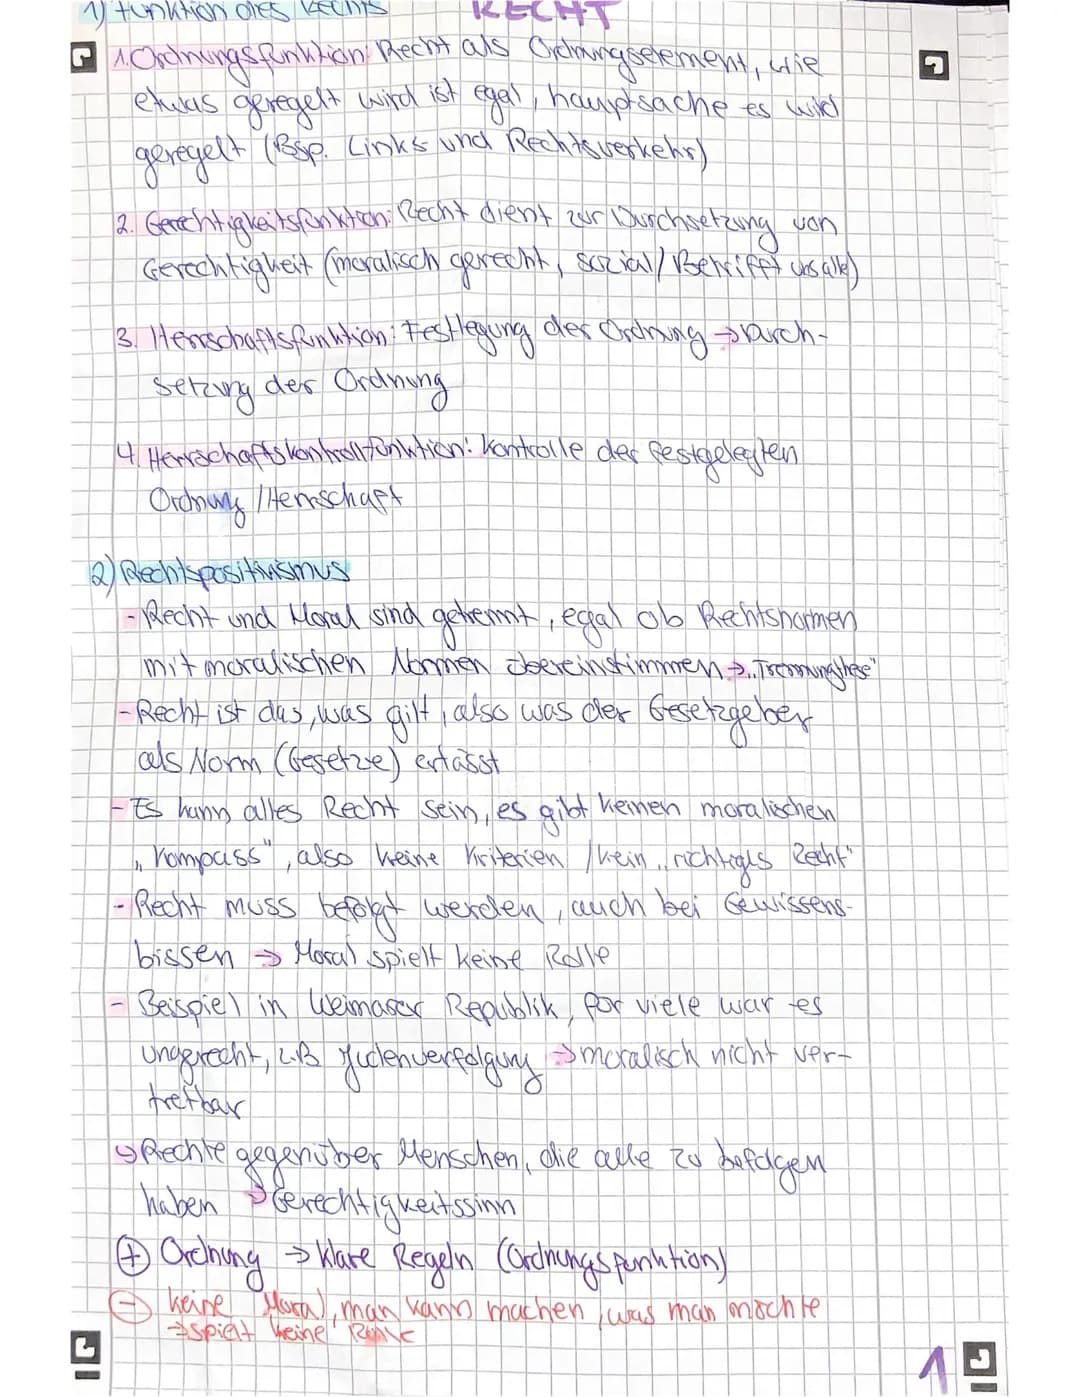 1) Funktion des Rechts RECHT
1. Ordnungsfunktion: Recht als Ordnungselement, wie
etwas geregelt wird ist egal, hauptsache es wird
geregelt (Bsp. Links und Rechtsverkehr)
2. Gerechtigkeitsfunktion: Recht dient zur Durchsetzung von
Gerechtigkeit (moralisch gerecht, sozial/Betrifft uns alle)
3. Herrschaftsfunktion: Festlegung der Ordnung → Durch-
setzung der Ordnung
4. Herrschaftskontrollfunktion: Kontrolle der festgelegten
Ordnung /Herrschaft
2) Rechtspositivismus
- Recht und Moral sind getrennt, egal ob Rechtsnormen
mit moralischen Normen übereinstimmen → „Trennungthese"
- Recht ist das, was gilt, also was der Gesetzgeber
als Norm (Gesetze) erlässt
- Es kann alles Recht sein, es gibt keinen moralischen
„Kompass", also keine Kriterien /kein „richtiges Recht"
- Recht muss befolgt werden, auch bei Gewissens-
bissen → Moral spielt keine Rolle
- Beispiel in Weimarer Republik, für viele war es
ungerecht, z.B Judenverfolgung → moralisch nicht ver-
tretbar
↳ Rechte gegenüber Menschen, die alle zu befolgen
haben → Gerechtigkeitssinn
⊕ Ordnung → klare Regeln (Ordnungsfunktion)
⊖ keine Moral, man kann machen, was man möchte
→ spielt keine Rolle
1